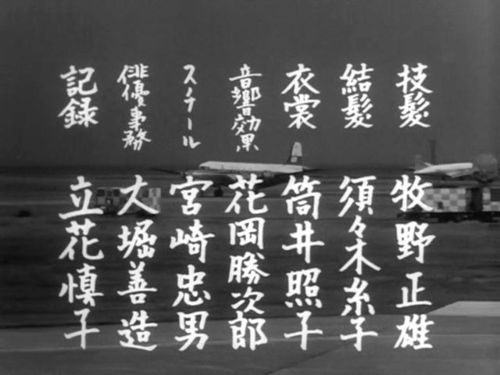 技髪 牧野正雄
結髪 須々木糸子
衣裳 筒井照子
音響効果 花岡勝次郎
スチール 宮崎忠男
俳優事務 大堀善造
記録 立花慎子